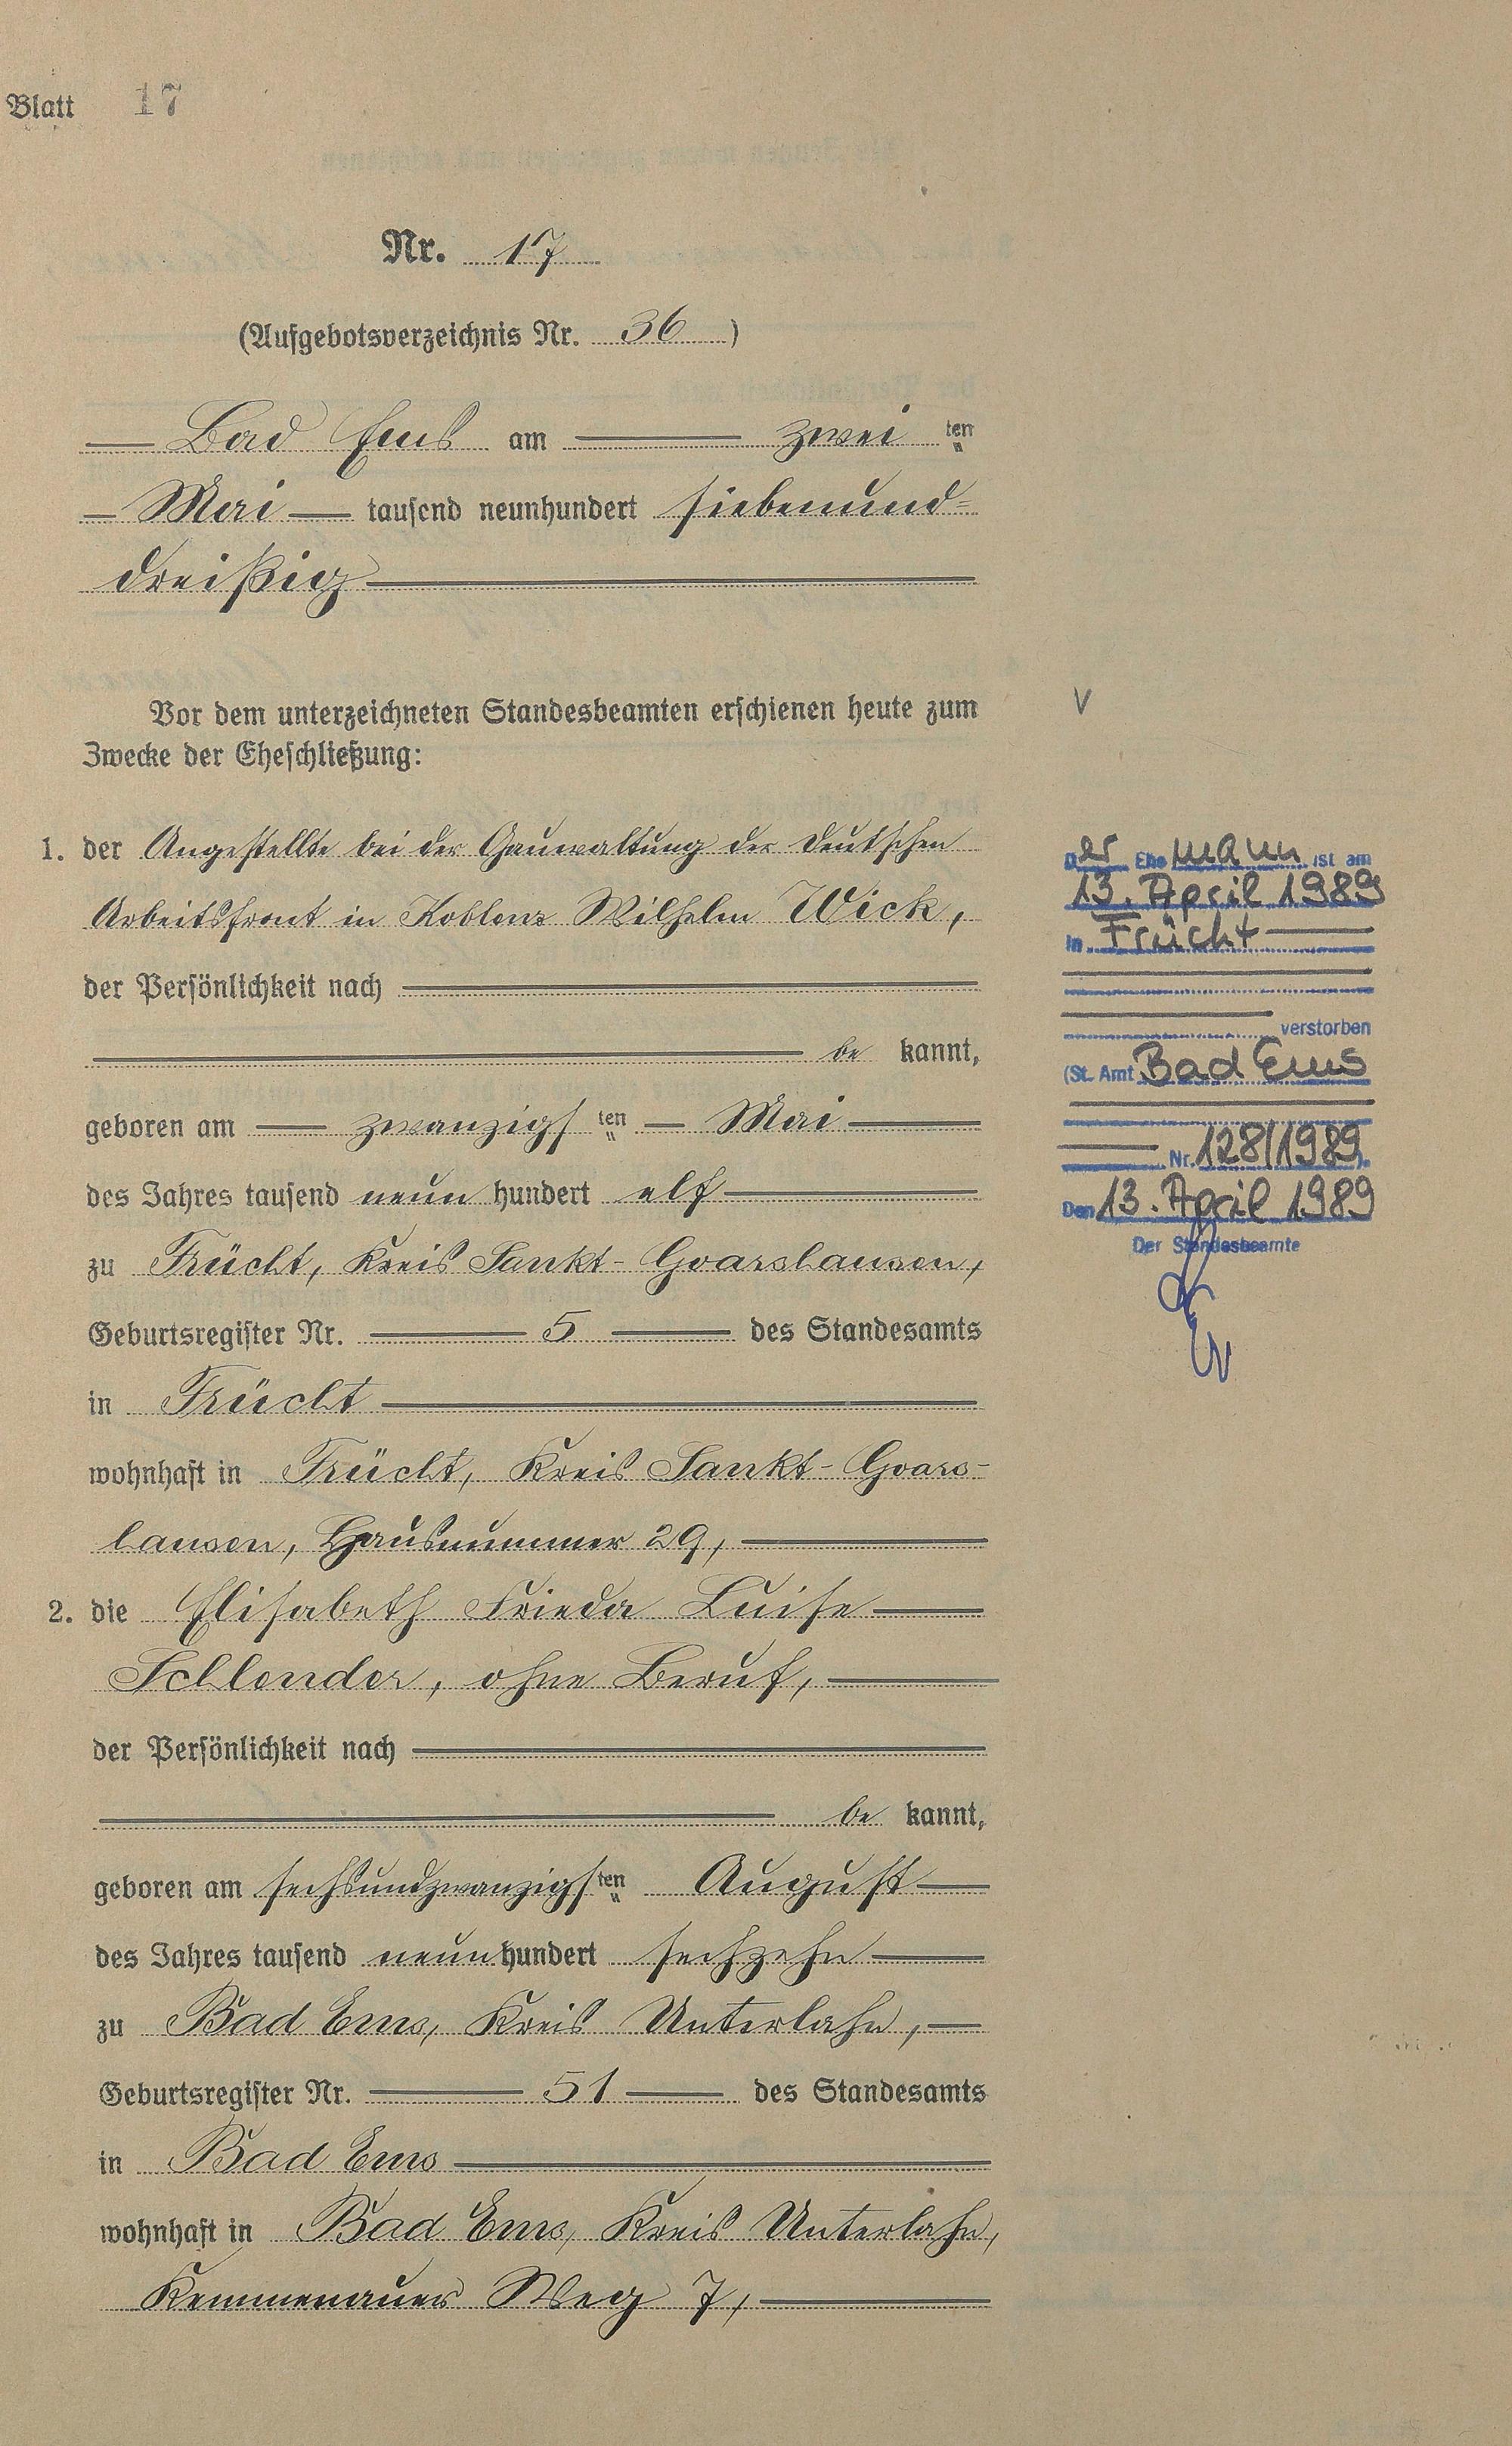 Blatt 17
Nr. 17
(Aufgebotsverzeichnis Nr. 36)
Bad Ems am zwei ten
Mai tausend neunhundert siebenund=
dreißig
Vor dem unterzeichneten Standesbeamten erschienen heute zum
Zwecke der Eheschließung:
1. der Angestellte bei der Gauwaltung der Deutschen
Arbeitsfront in Koblenz Wilhelm Wick,
der Persönlichkeit nach
be kannt,
geboren am zwanzigs ten Mai
des Jahres tausend neun hundert elf
zu Frücht, Kreis Sankt-Goarshausen,
Geburtsregister Nr. 5 des Standesamts
in Frücht
wohnhaft in Frücht, Kreis Sankt-Goars-
hausen, Hausnummer 29,
2. die Elisabeth Frieda Luise
Schlender, ohne Beruf,
der Persönlichkeit nach
be kannt,
geboren am sechsundzwanzigs ten August
des Jahres tausend neun hundert sechzehn
zu Bad Ems, Kreis Unterlahn,
Geburtsregister Nr. 51 des Standesamts
in Bad Ems
wohnhaft in Bad Ems, Kreis Unterlahn,
Kemmenauer Weg 7,
V
Der Ehemann ist am
13. April 1989
in Frücht
verstorben
(St. Amt Bad Ems
Nr. 128/1989).
Den 13. April 1989
Der Standesbeamte